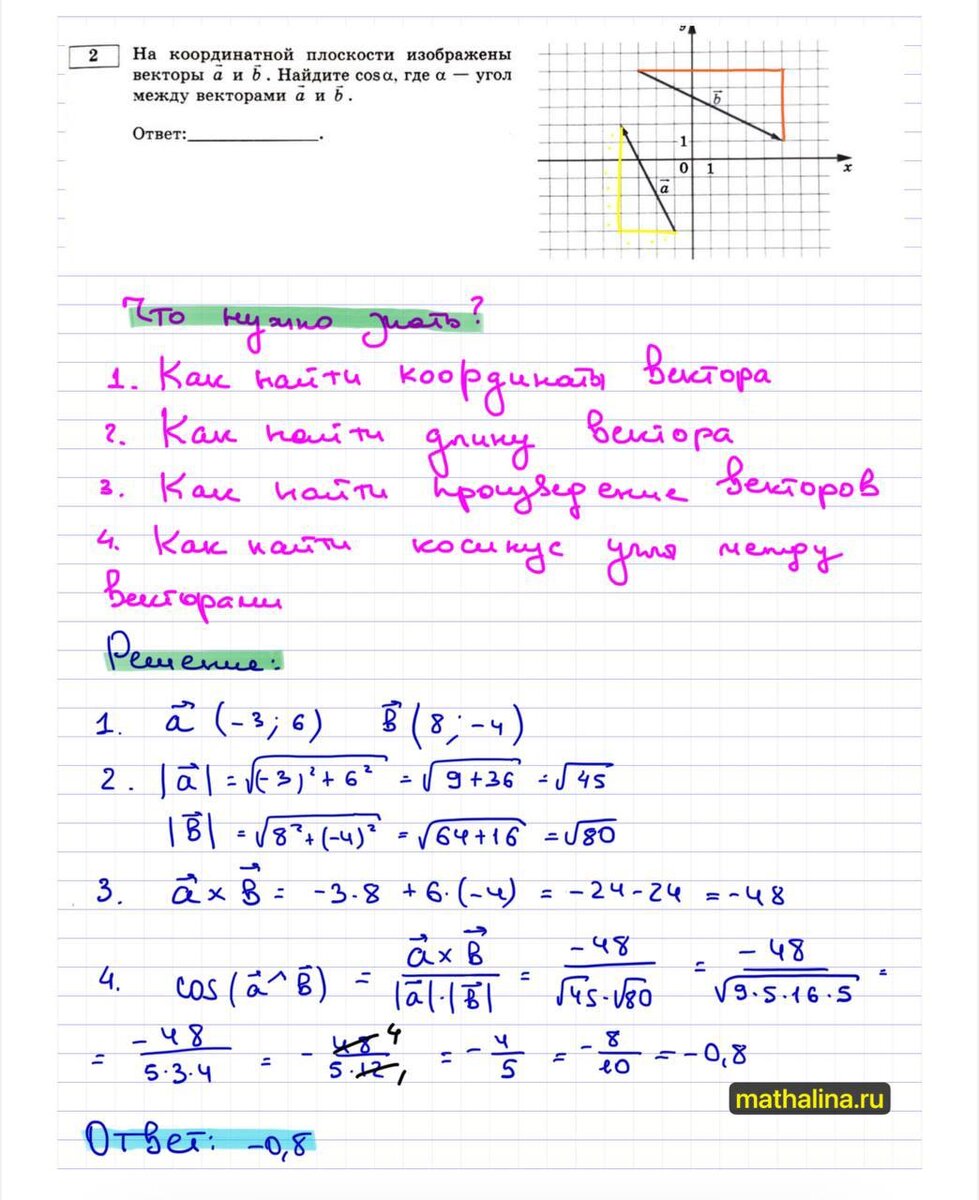 2
На координатной плоскости изображены
векторы a⃗ и b⃗. Найдите cos α, где α — угол
между векторами a⃗ и b⃗.
Ответ:______________.
y
b⃗
1
0 1
x
a⃗
Что нужно знать?
1. Как найти координаты вектора
2. Как найти длину вектора
3. Как найти произведение векторов
4. Как найти косинус угла между
векторами
Решение:
1. a⃗ (-3; 6) B⃗ (8; -4)
2. |a⃗| = √((-3)² + 6²) = √(9+36) = √45
|B⃗| = √(8²+(-4)²) = √(64+16) = √80
3. a⃗ × B⃗ = -3·8 + 6·(-4) = -24-24 = -48
4. cos(a⃗ ^ B⃗) = (a⃗ × B⃗)/(|a⃗|·|B⃗|) = -48/(√45·√80) = -48/√(9·5·16·5) =
= -48/(5·3·4) = - 48 4/(5·12 1) = - 4/5 = - 8/10 = -0,8
mathalina.ru
Ответ: -0,8